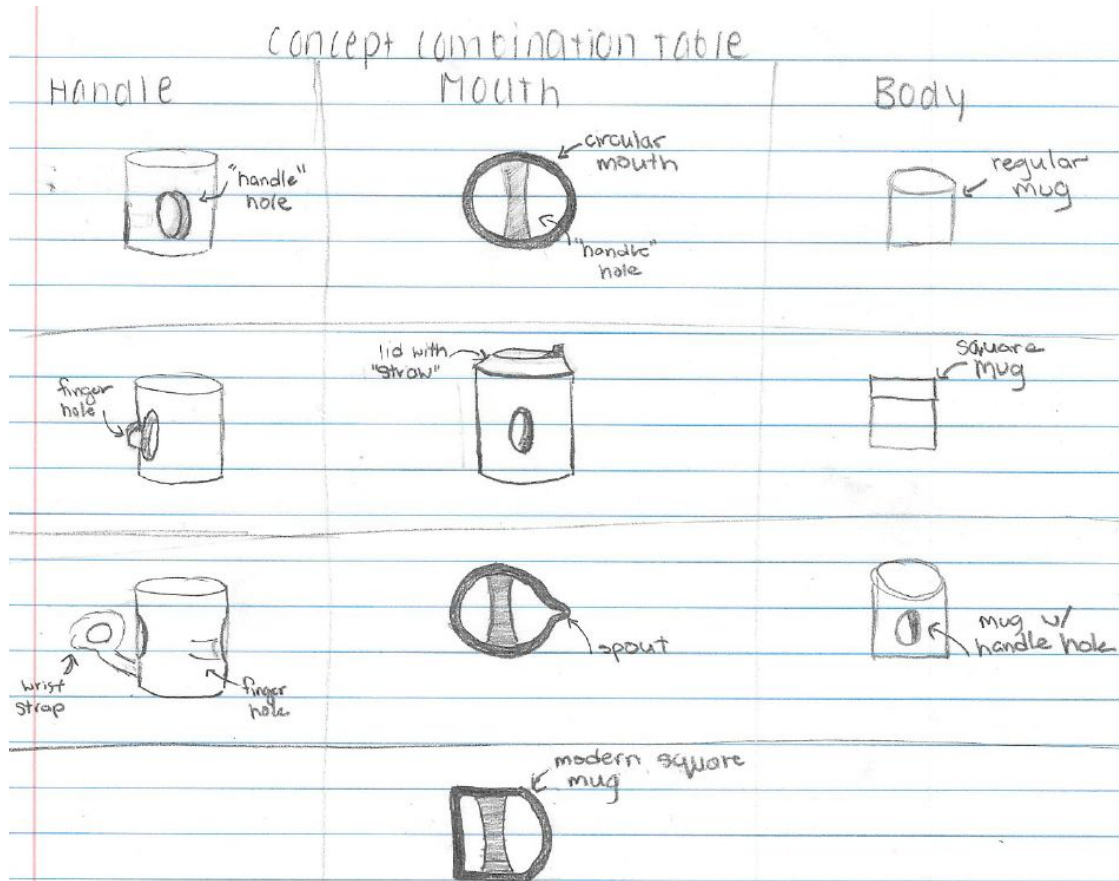 Concept Combination Table
Handle
Mouth
Body
"handle"
hole
circular
mouth
"handle"
hole
regular
mug
finger
hole
lid with
"straw"
square
mug
wrist
strap
finger
hole
spout
mug w/
handle hole
modern square
mug